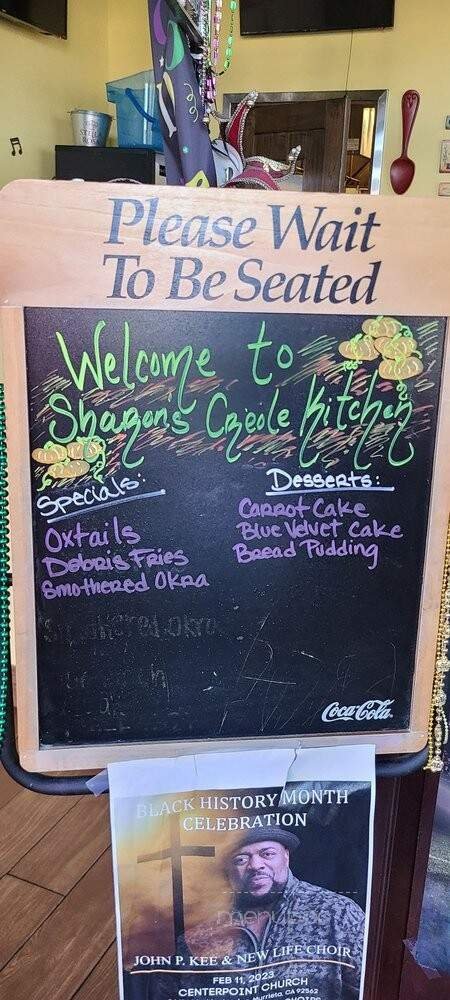 Please Wait
To Be Seated
Welcome to
Sharon's Creole Kitchen
Specials:
Oxtails
Debris Fries
Smothered Okra
Desserts:
Carrot Cake
Blue Velvet Cake
Bread Pudding
Smothered Okra
Coca-Cola
BLACK HISTORY MONTH
CELEBRATION
menupix
JOHN P. KEE & NEW LIFE CHOIR
FEB 11, 2023
CENTERPOINT CHURCH
Murrieta, CA 92562